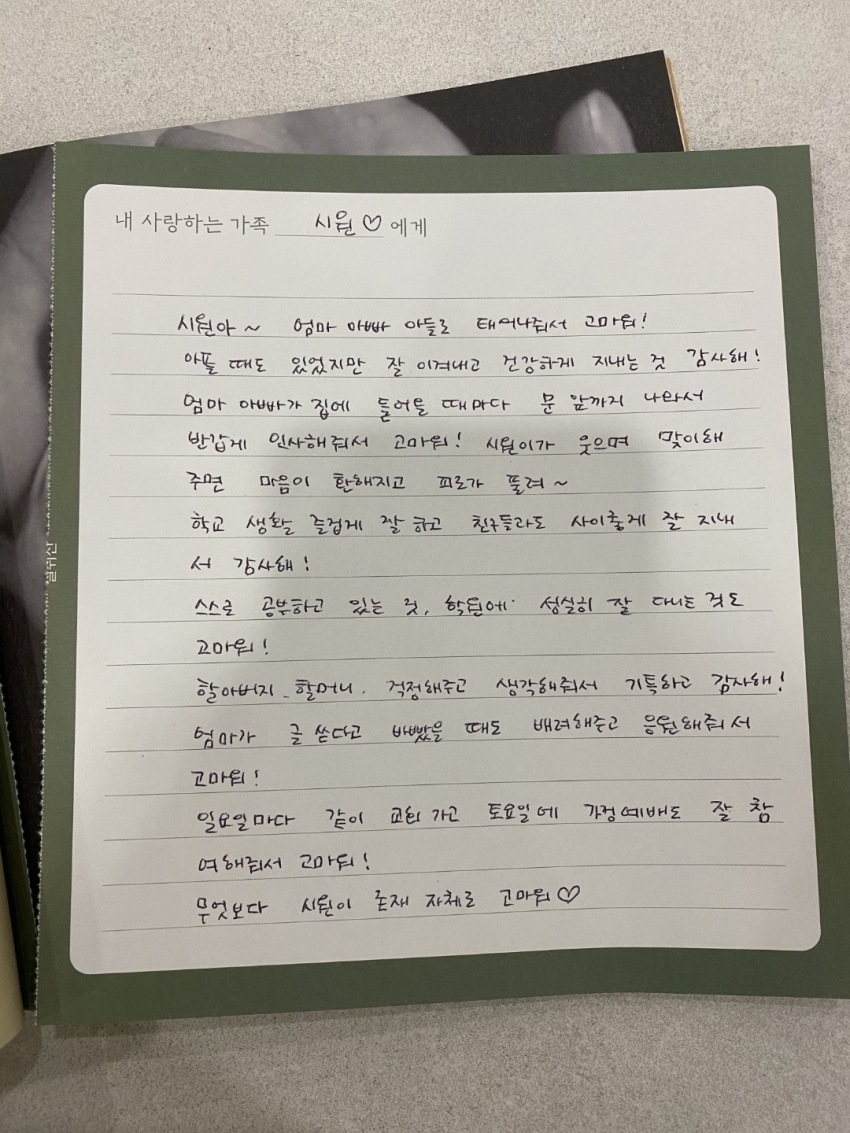 내 사랑하는 가족 시원♡에게
시원아~ 엄마 아빠 아들로 태어나줘서 고마워!
아플 때도 있었지만 잘 이겨내고 건강하게 지내는 것 감사해!
엄마 아빠가 집에 들어올 때마다 문 앞까지 나와서
반갑게 인사해줘서 고마워! 시원이가 웃으며 맞이해
주면 마음이 환해지고 피로가 풀려~
학교 생활 즐겁게 잘 하고 친구들과도 사이좋게 잘 지내
서 감사해!
스스로 공부하고 있는 것, 학원에 성실히 잘 다니는 것도
고마워!
할아버지, 할머니, 걱정해주고 생각해줘서 기특하고 감사해!
엄마가 글 쓴다고 바빴을 때도 배려해주고 응원해줘서
고마워!
일요일마다 같이 교회 가고 토요일에 가정예배도 잘 참
여해줘서 고마워!
무엇보다 시원이 존재 자체로 고마워♡